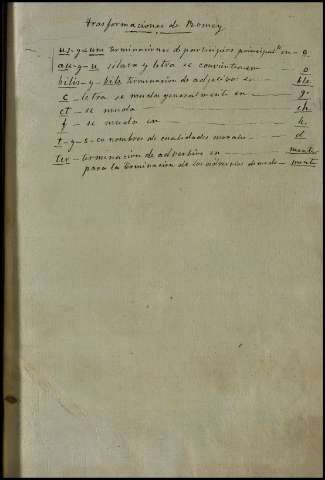 trasformaciones de Romey
us-y-um terminaciones d participios principal.te en - o
au-y-u silava y letra se convierten en - o
bilis-y-bile terminacion de adjetivos en - ble.
c - letra se muda generalmente en - g.
ct - se muda - ch.
f - se muda en - h.
t-y-s-co nombres de cualidades morales - d
ter - terminacion de adverbios en - mente
para la terminacion de los adverbios de modo - mente